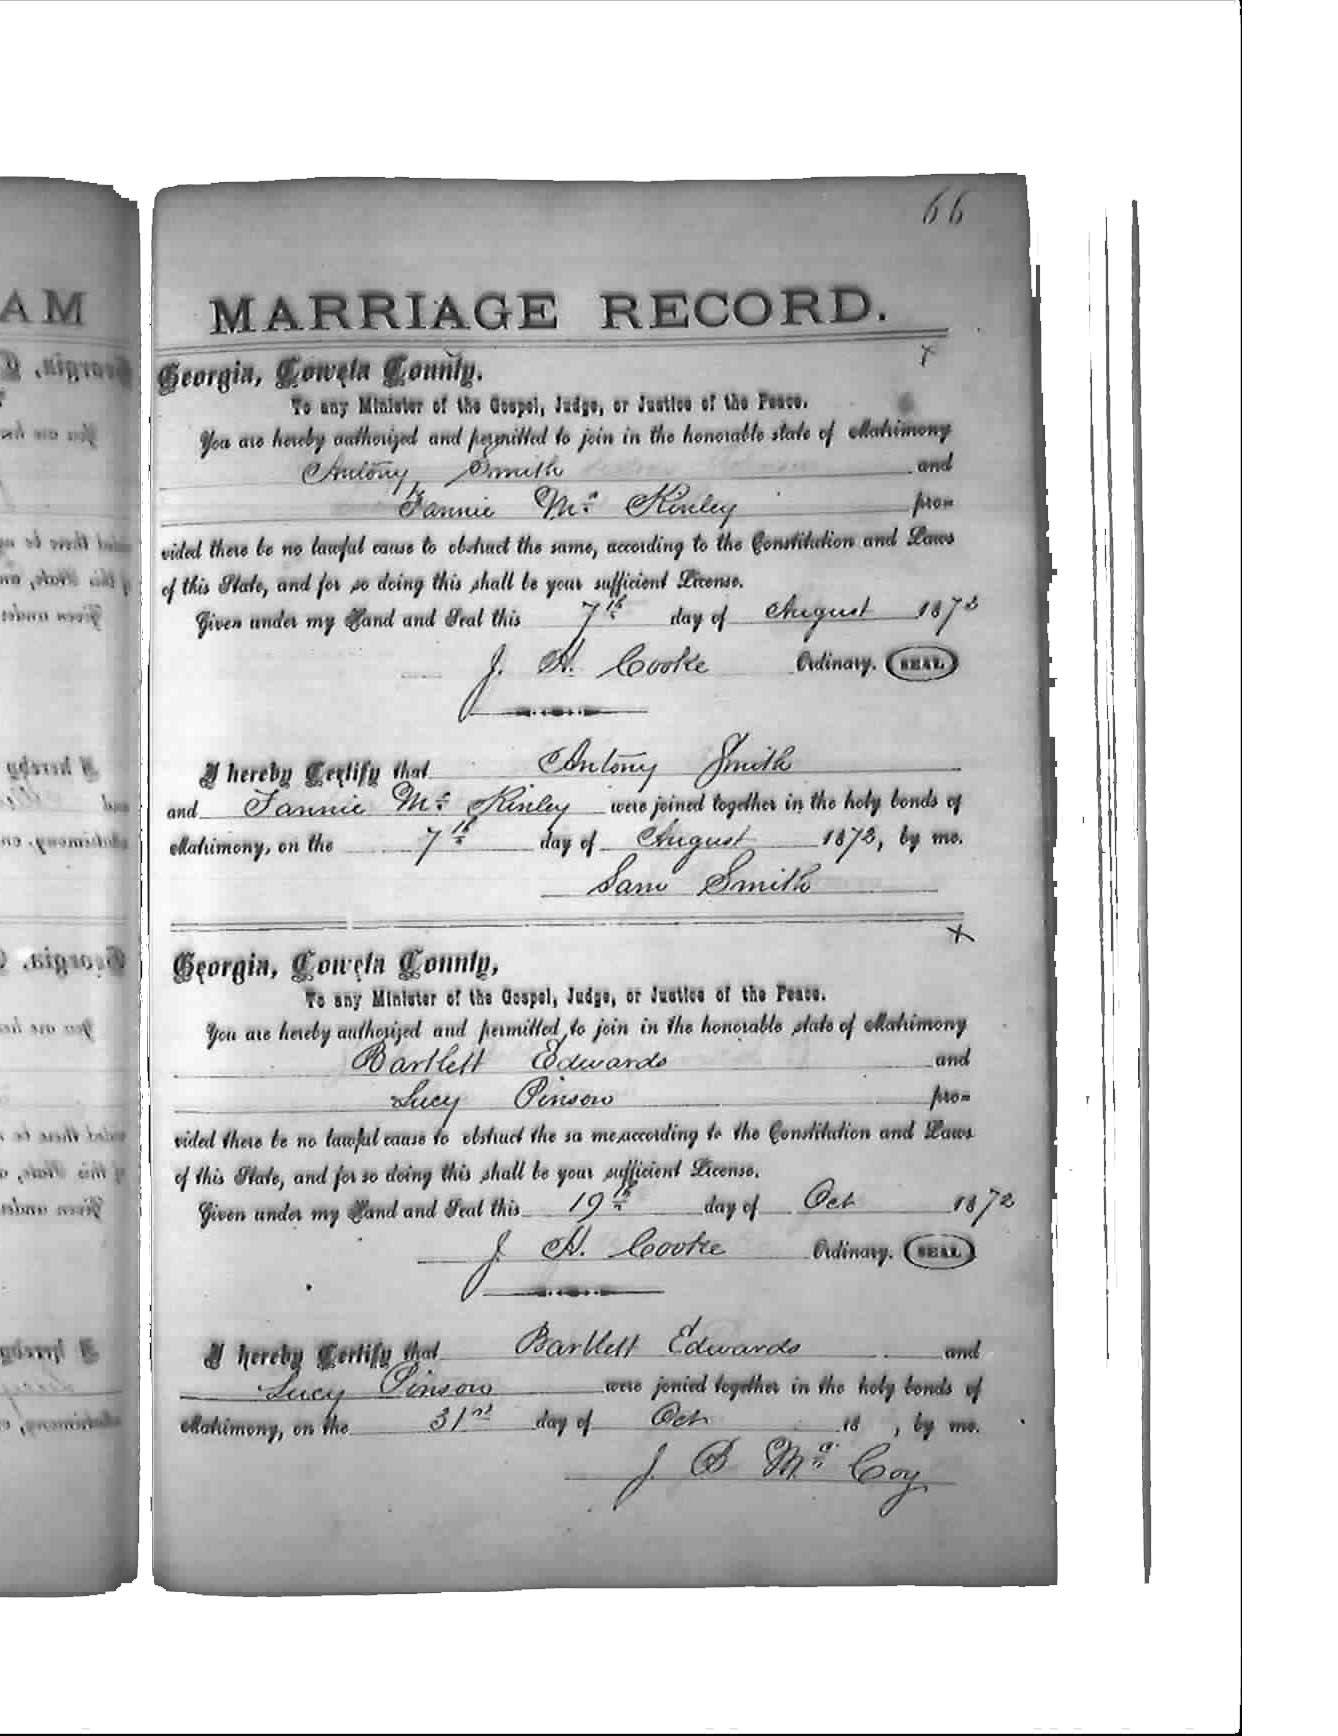 66
MARRIAGE RECORD.
x
Georgia, Coweta County.
To any Minister of the Gospel, Judge, or Justice of the Peace.
You are hereby authorized and permitted to join in the honorable state of Matrimony
Antony Smith and
Fannie Mc Kinley pro=
vided there be no lawful cause to obstruct the same, according to the Constitution and Laws
of this State, and for so doing this shall be your sufficient License.
Given under my Hand and Seal this 7th day of August 1872
J. H. Cooke Ordinary. SEAL
I hereby Certify that Antony Smith
and Fannie Mc Kinley were joined together in the holy bonds of
Matrimony, on the 7th day of August 1872, by me.
Sam Smith
x
Georgia, Coweta County,
To any Minister of the Gospel, Judge, or Justice of the Peace.
You are hereby authorized and permitted to join in the honorable state of Matrimony
Bartlett Edwards and
Lucy Pinson pro=
vided there be no lawful cause to obstruct the sa me,according to the Constitution and Laws
of this State, and for so doing this shall be your sufficient License.
Given under my Hand and Seal this 19th day of Oct 1872
J H. Cooke Ordinary. SEAL
I hereby Certify that Bartlett Edwards and
Lucy Pinson were jonied together in the holy bonds of
Matrimony, on the 31st day of Oct 18 , by me.
J B Mc Coy